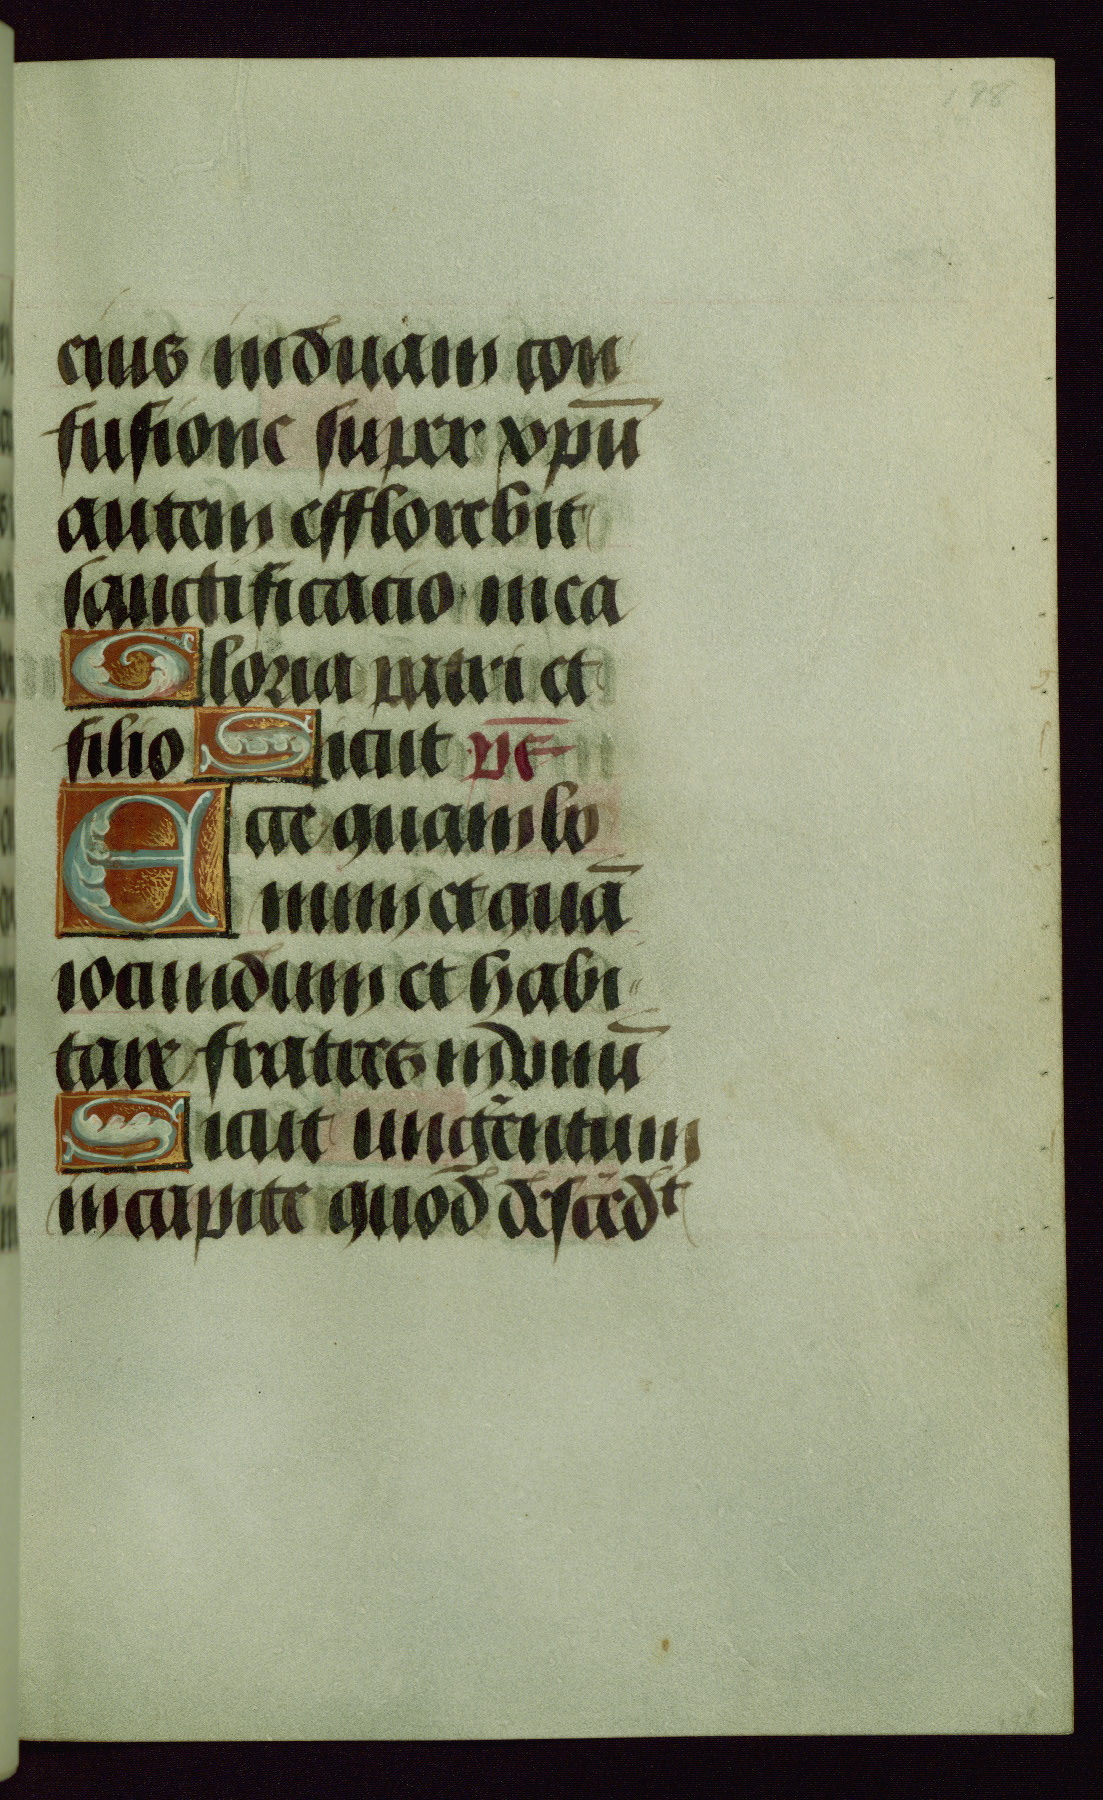 198
eius induam con
fusione super xpm̄
autem efflorebit
sanctificacio mea
Gloria patri et
filio Sicut ps̄
Ecce quam bo
num et quā
iocundum et habi
tare fratres in vnū
Sicut ungēntum
in capite quod descēdt